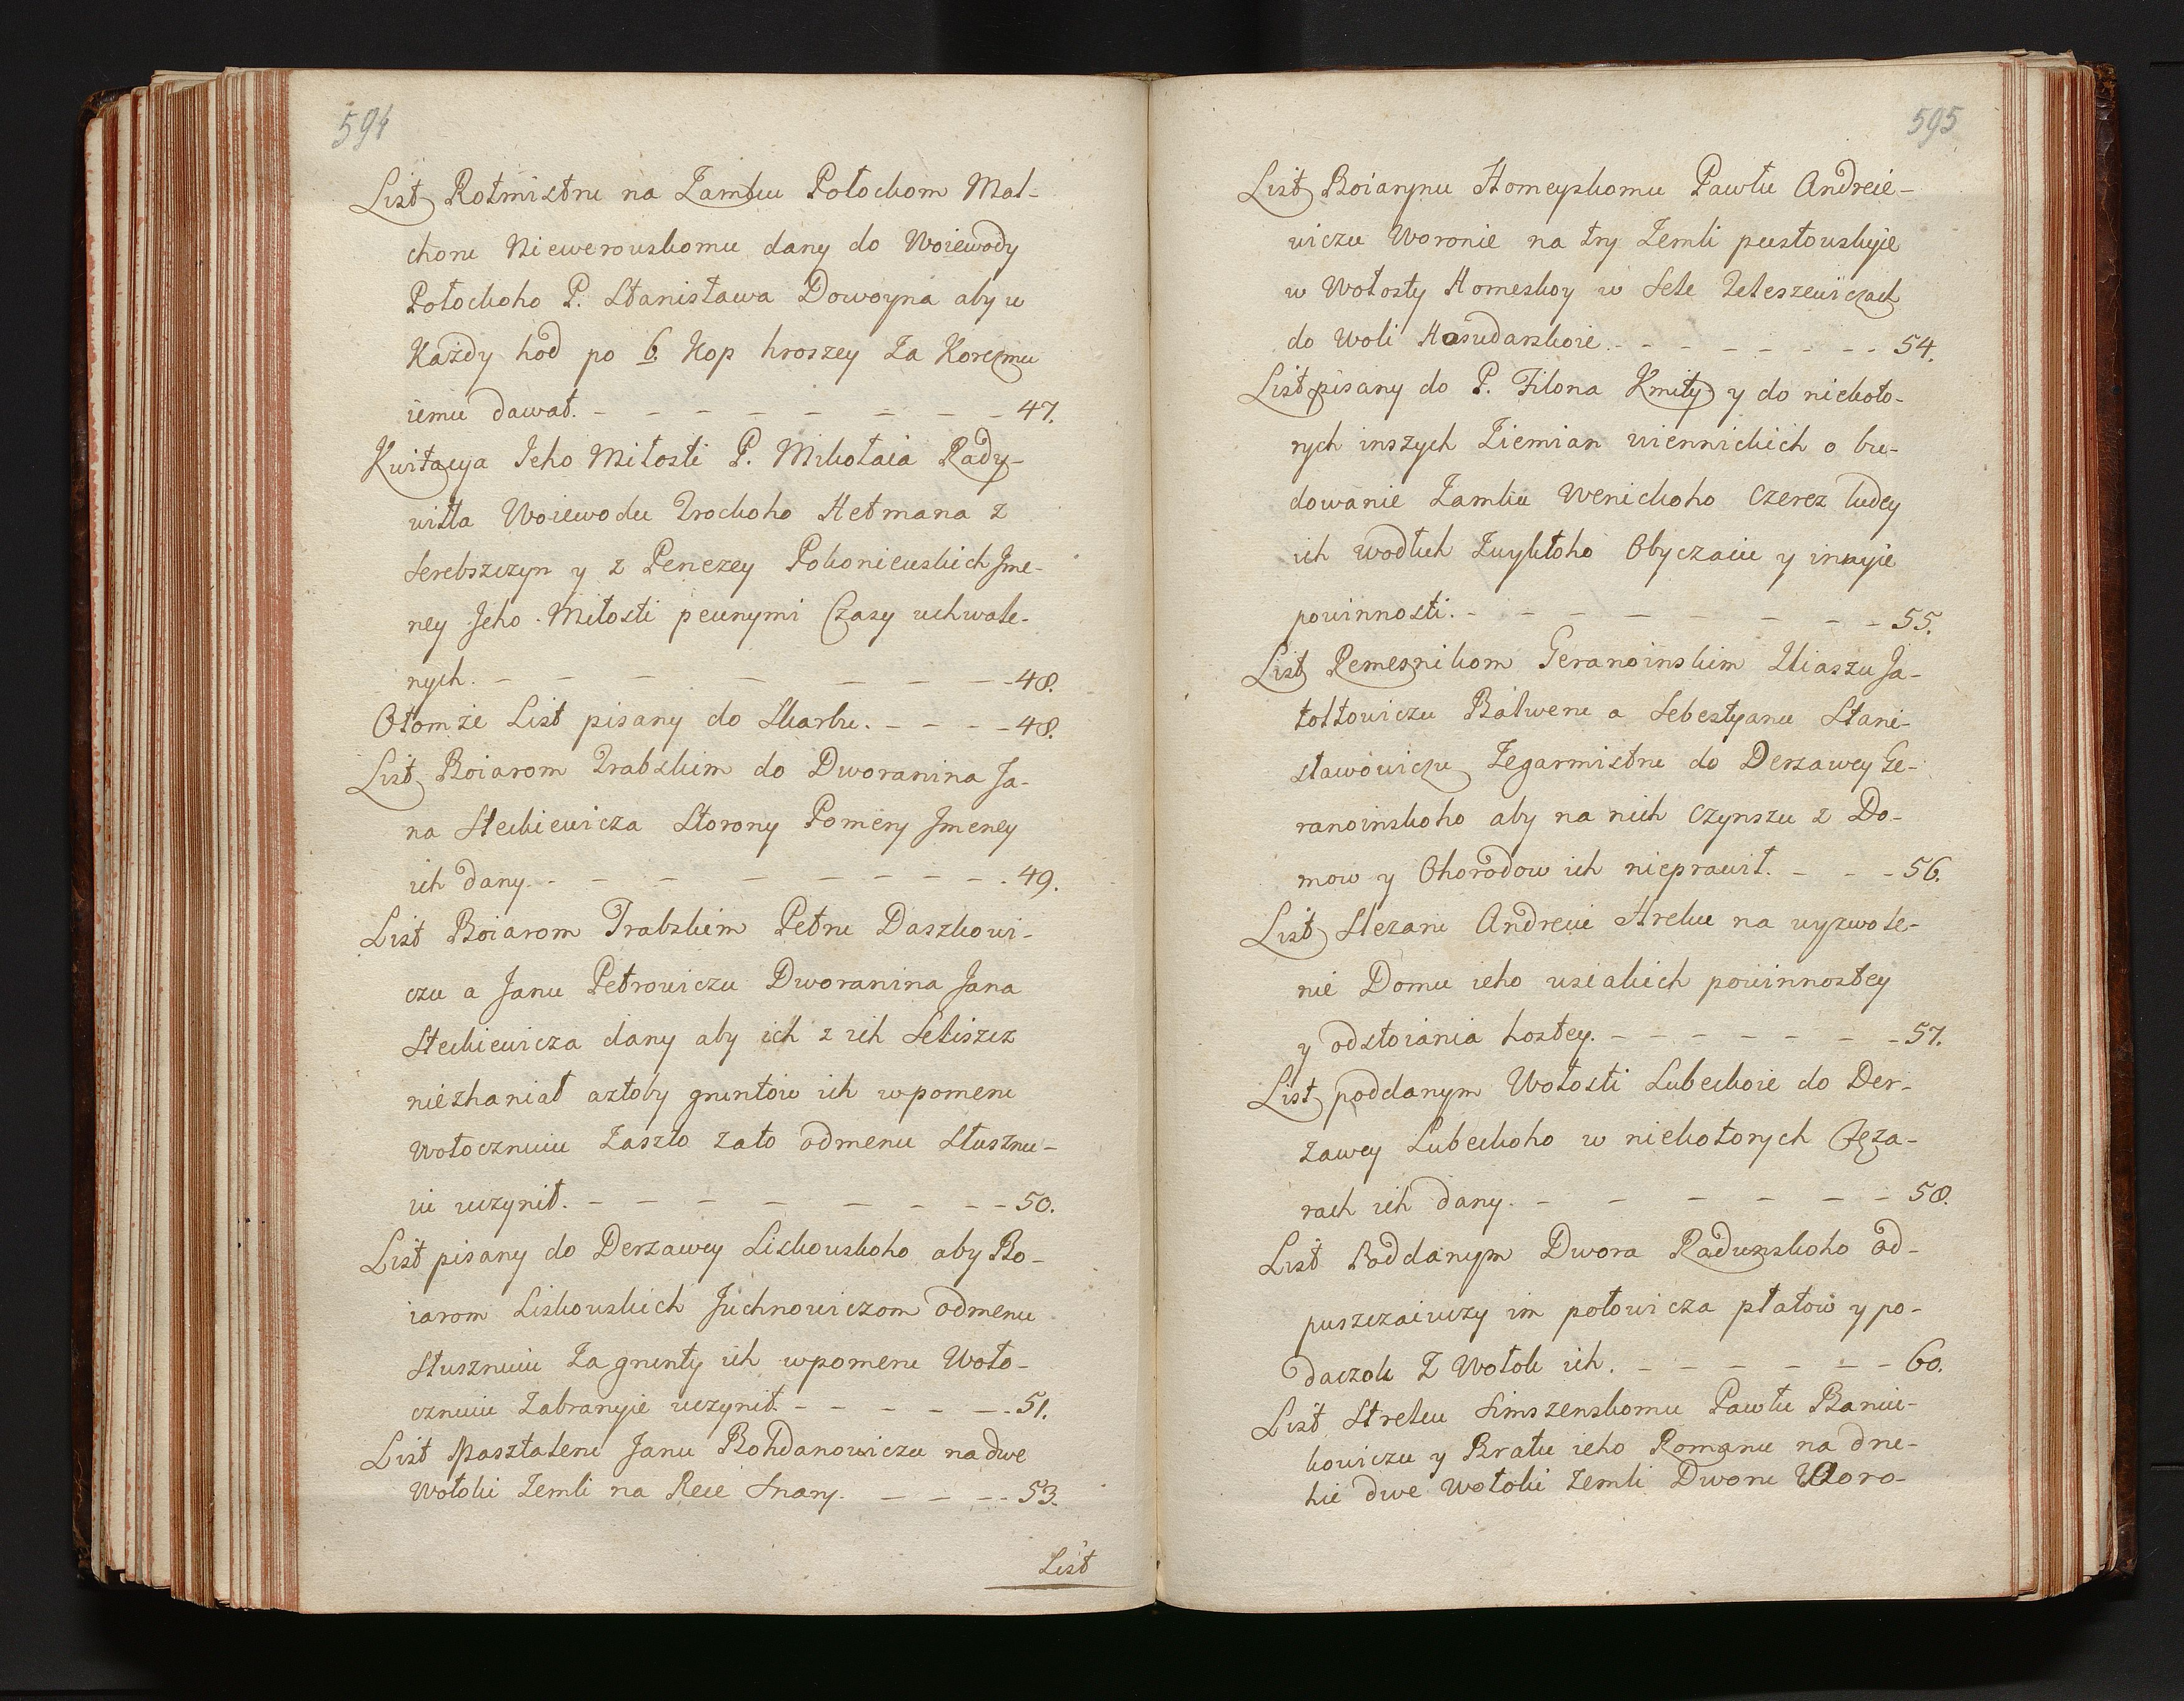 594
List Rotmistru na Zamku Połockom Mal-
cheru Niewerouskomu dany do Woiewody
Połockoho P. Stanisława Dowoyna aby w
Każdy hod po 6. Kop hroszey Za Korczmu
iemu dawał. - - - - - - - - 47.
Kwitacya Jeho Miłosti P. Mikołaia Rady-
wiła Woiewodu Trockoho Hetmana z
Serebszczyn y z Penezey Pokoniewskich Jme-
ney Jeho Miłosti pewnymi Czasy uchwale-
nych. - - - - - - - - 48.
Otomże List pisany do Skarbu. - - - - 48.
List Boiarom Trabskim do Dworanina Ja-
na Steckiewicza Storony Pomery Jmeney
ich dany. - - - - - - - - - 49.
List Boiarom Trabskim Petru Daszkowi-
czu a Janu Petrowiczu Dworanina Jana
Steckiewicza dany aby ich z ich Seliszcz
niezhaniał asztoby gruntów ich w pomeru
Wołocznuiu Zaszło zato odmenu Słusznu-
iu uczynił. - - - - - - - - 50.
List pisany do Derżawcy Liskouskoho aby Bo-
iarom Liskouskich Juchnowiczom odmenu
Słusznuiu Za grunty ich w pomeru Woło-
cznuiu Zabranyie uczynił. - - - - - - 51.
List Masztaleru Janu Bohdanowiczu na dwe
Wołoki Zemli na Rece Snary. - - - - 53.
List
595
List Boiarynu Homeyskomu Pawłu Andreie-
wiczu Woronie na try Zemli pustouskyie
w Wołosty Homeskoy w Sele Teleszewiczach
do Woli Hosudarskoie. - - - - - - - - 54.
List pisany do P. Filona Kmity y do niekoto-
rych inszych Ziemian winnickich o bu-
dowanie Zamku Wenickoho Czerez ludey
ich wodłuh Zwykłoho Obyczaiu y innyie
powinnosti. - - - - - - - - - 55.
List Remesnikom Geranoinskim Iliaszu Ja-
tołtowiczu Balweru a Sebestyanu Stani-
sławowiczu Zegarmistru do Derżawcy Ge-
ranoinskoho aby na nich Czynszu z Do-
mow y Ohorodow ich nieprawił. - - - 56.
List Slezaru Andreiu Hreku na wyzwole-
nie Domu ieho usiakich powinnostey
y odstoiania hostey. - - - - - - - 57.
List poddanym Wołosti Lubeckoie do Der-
żawcy Lubeckoho w niekotorych Cięża-
rach ich dany. - - - - - - - 58.
List Poddanym Dwora Radunskoho od-
puszczaiuczy im połowicza płatow y po-
daczok Z Wołok ich. - - - - - - 60.
List Strelcu Simszenskomu Pawłu Baniu-
kowiczu y Bratu ieho Romanu na dru-
hie dwe Wołoki Zemli Dworu Uboro-